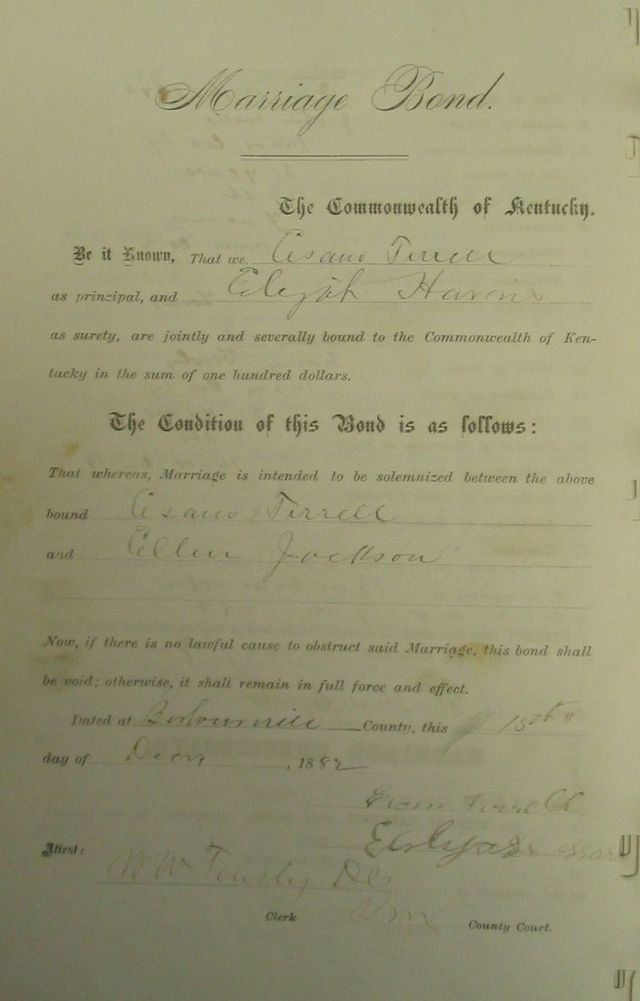 Marriage Bond.
The Commonwealth of Kentucky.
Be it Known, That we, Tirrell
as principal, and Elijah Harris
as surety, are jointly and severally bound to the Commonwealth of Ken-
tucky in the sum of one hundred dollars.
The Condition of this Bond is as follows:
That whereas, Marriage is intended to be solemnized between the above
bound Tirrell
and Ellen Jackson
Now, if there is no lawful cause to obstruct said Marriage, this bond shall
be void; otherwise, it shall remain in full force and effect.
Dated at County, this 15th
day of , 1882
Attest:
W W Tinsley
Clerk County Court.